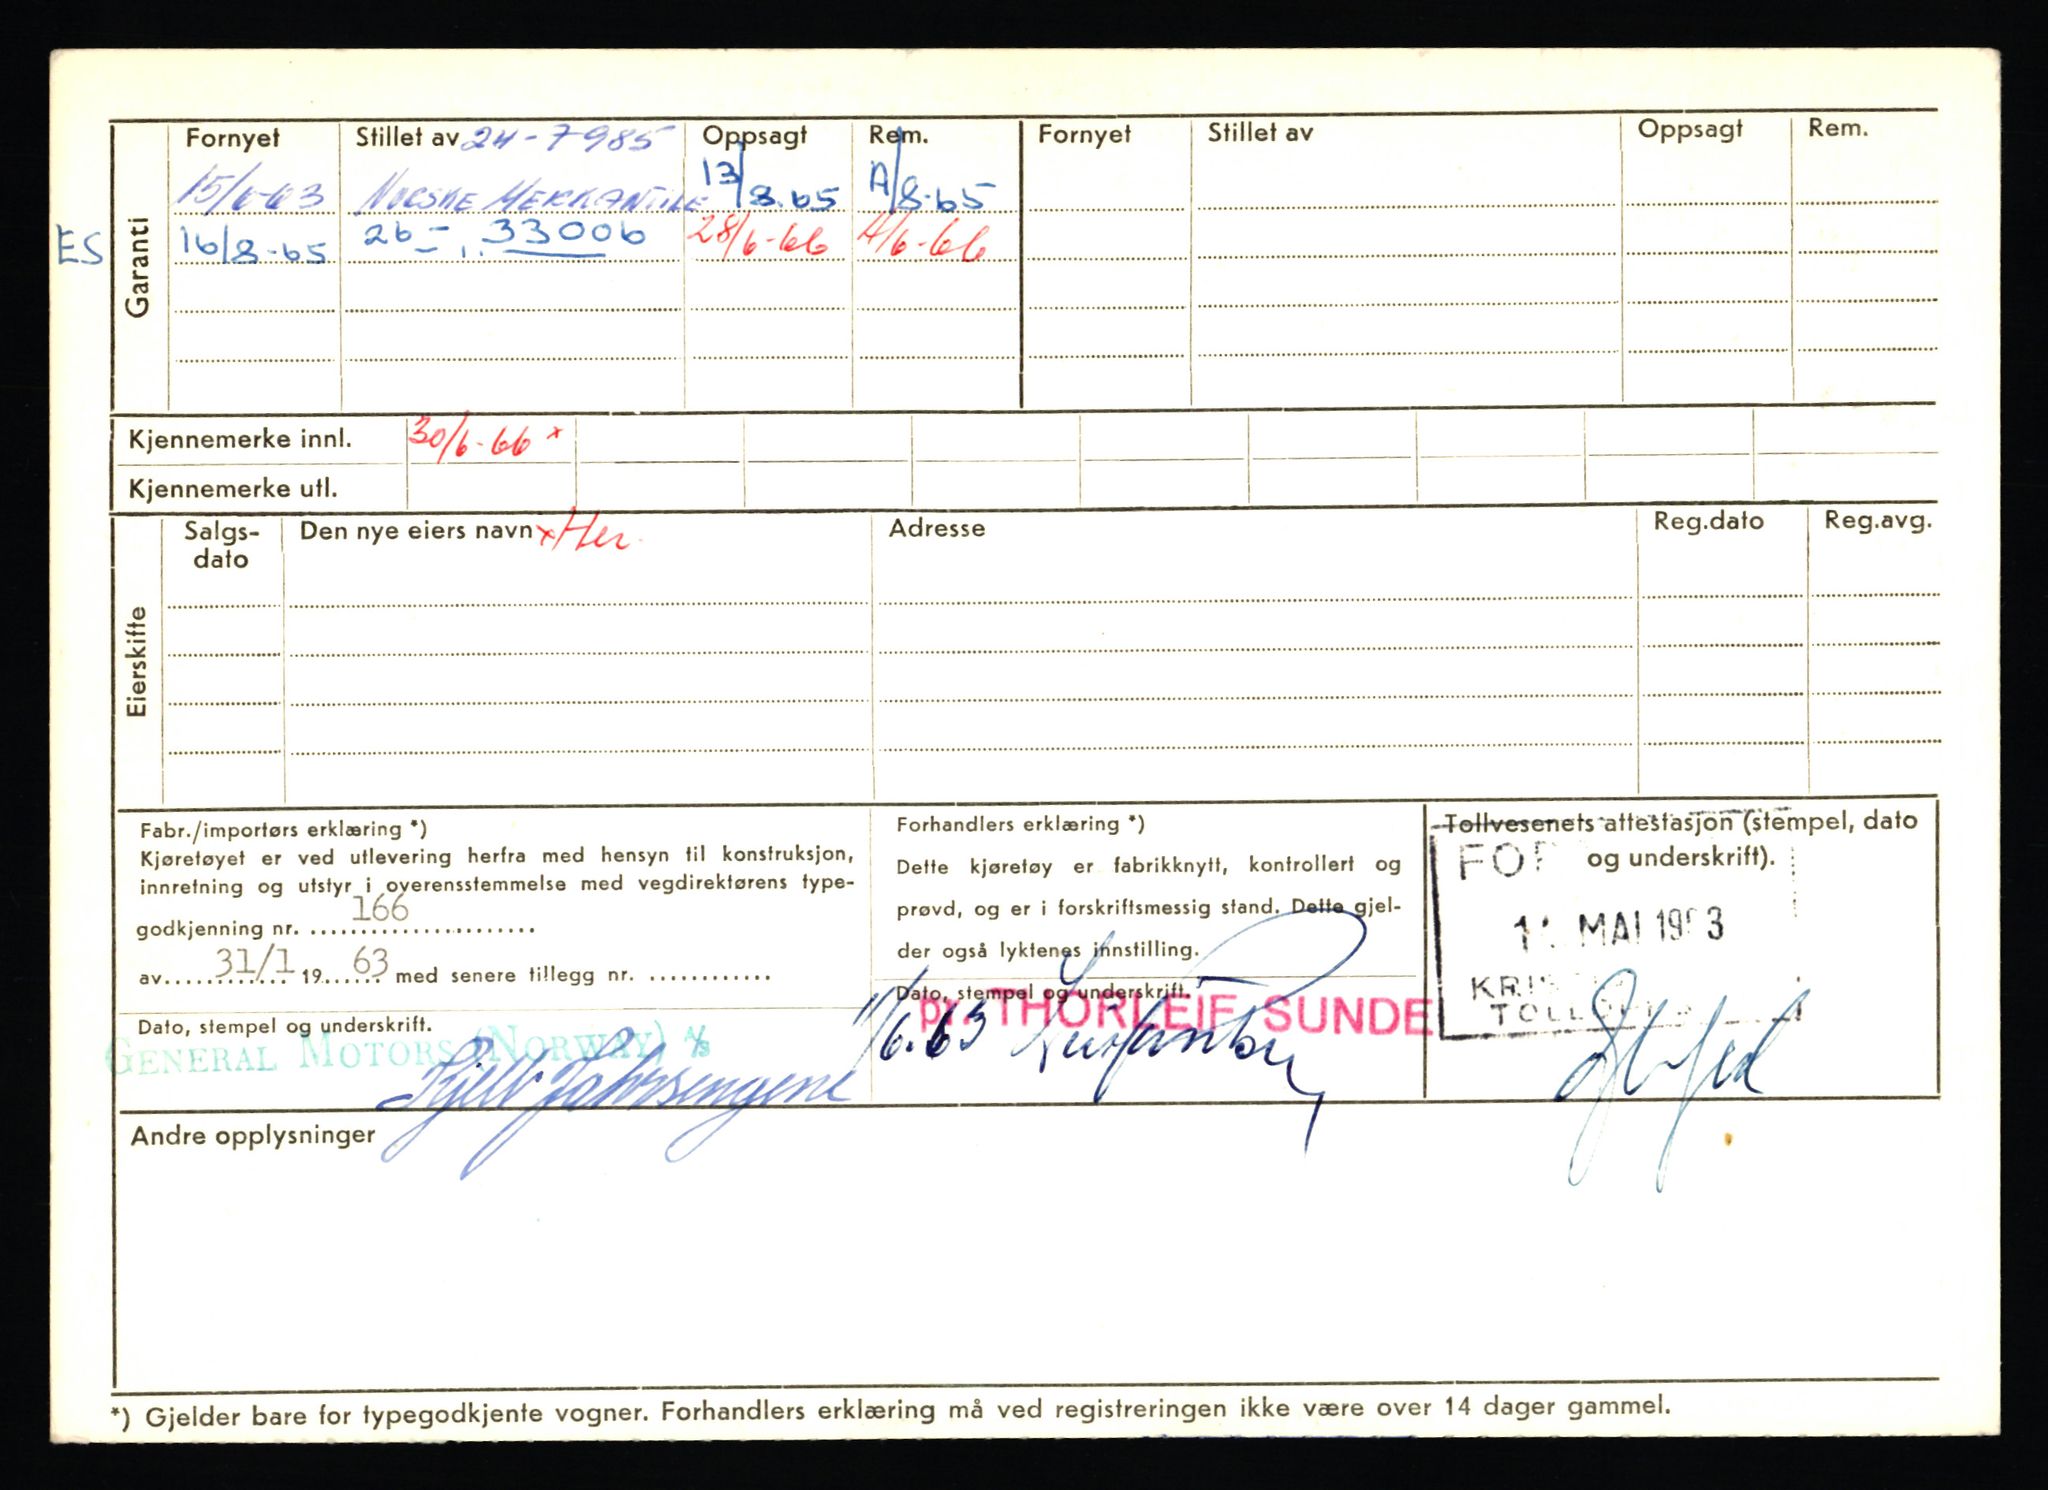 Fornyet Stillet av 24-7985 Oppsagt Rem. Fornyet Stillet av Oppsagt Rem.
15/6-63 NORSKE MERKANTILE 13/8.65 A/8-65
ES 16/8-65 26 - 33006 28/6-66 A/6-66
Garanti
Kjennemerke innl. 30/6-66 x
Kjennemerke utl.
Salgs-dato Den nye eiers navn x Her. Adresse Reg.dato Reg.avg.
Eierskifte
Fabr./importørs erklæring *)
Kjøretøyet er ved utlevering herfra med hensyn til konstruksjon,
innretning og utstyr i overensstemmelse med vegdirektørens type-
godkjenning nr. 166
av 31/1 19 63 med senere tillegg nr.
Dato, stempel og underskrift.
GENERAL MOTORS (NORWAY) A/S
Forhandlers erklæring *)
Dette kjøretøy er fabrikknytt, kontrollert og
prøvd, og er i forskriftsmessig stand. Dette gjel-
der også lyktenes innstilling.
Dato, stempel og underskrift.
pr. THORLEIF SUNDE
11/6.63
Tollvesenets attestasjon (stempel, dato
og underskrift).
MAI 1963
Andre opplysninger
*) Gjelder bare for typegodkjente vogner. Forhandlers erklæring må ved registreringen ikke være over 14 dager gammel.